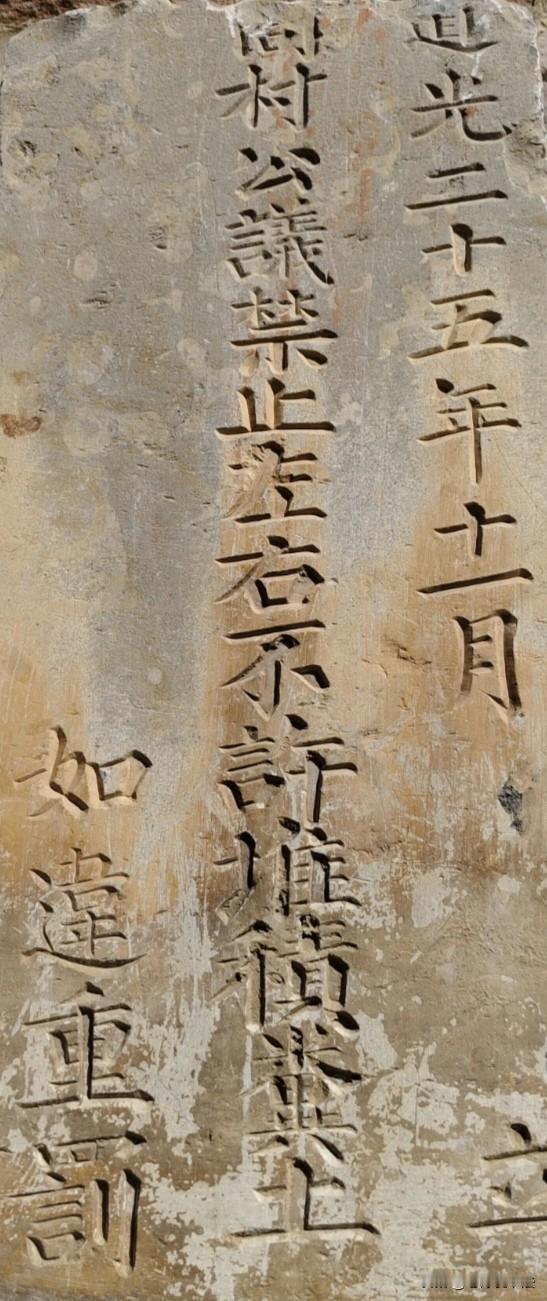 道光二十五年十一月 立
村公議禁止左右不許堆積粪土
如違重罰